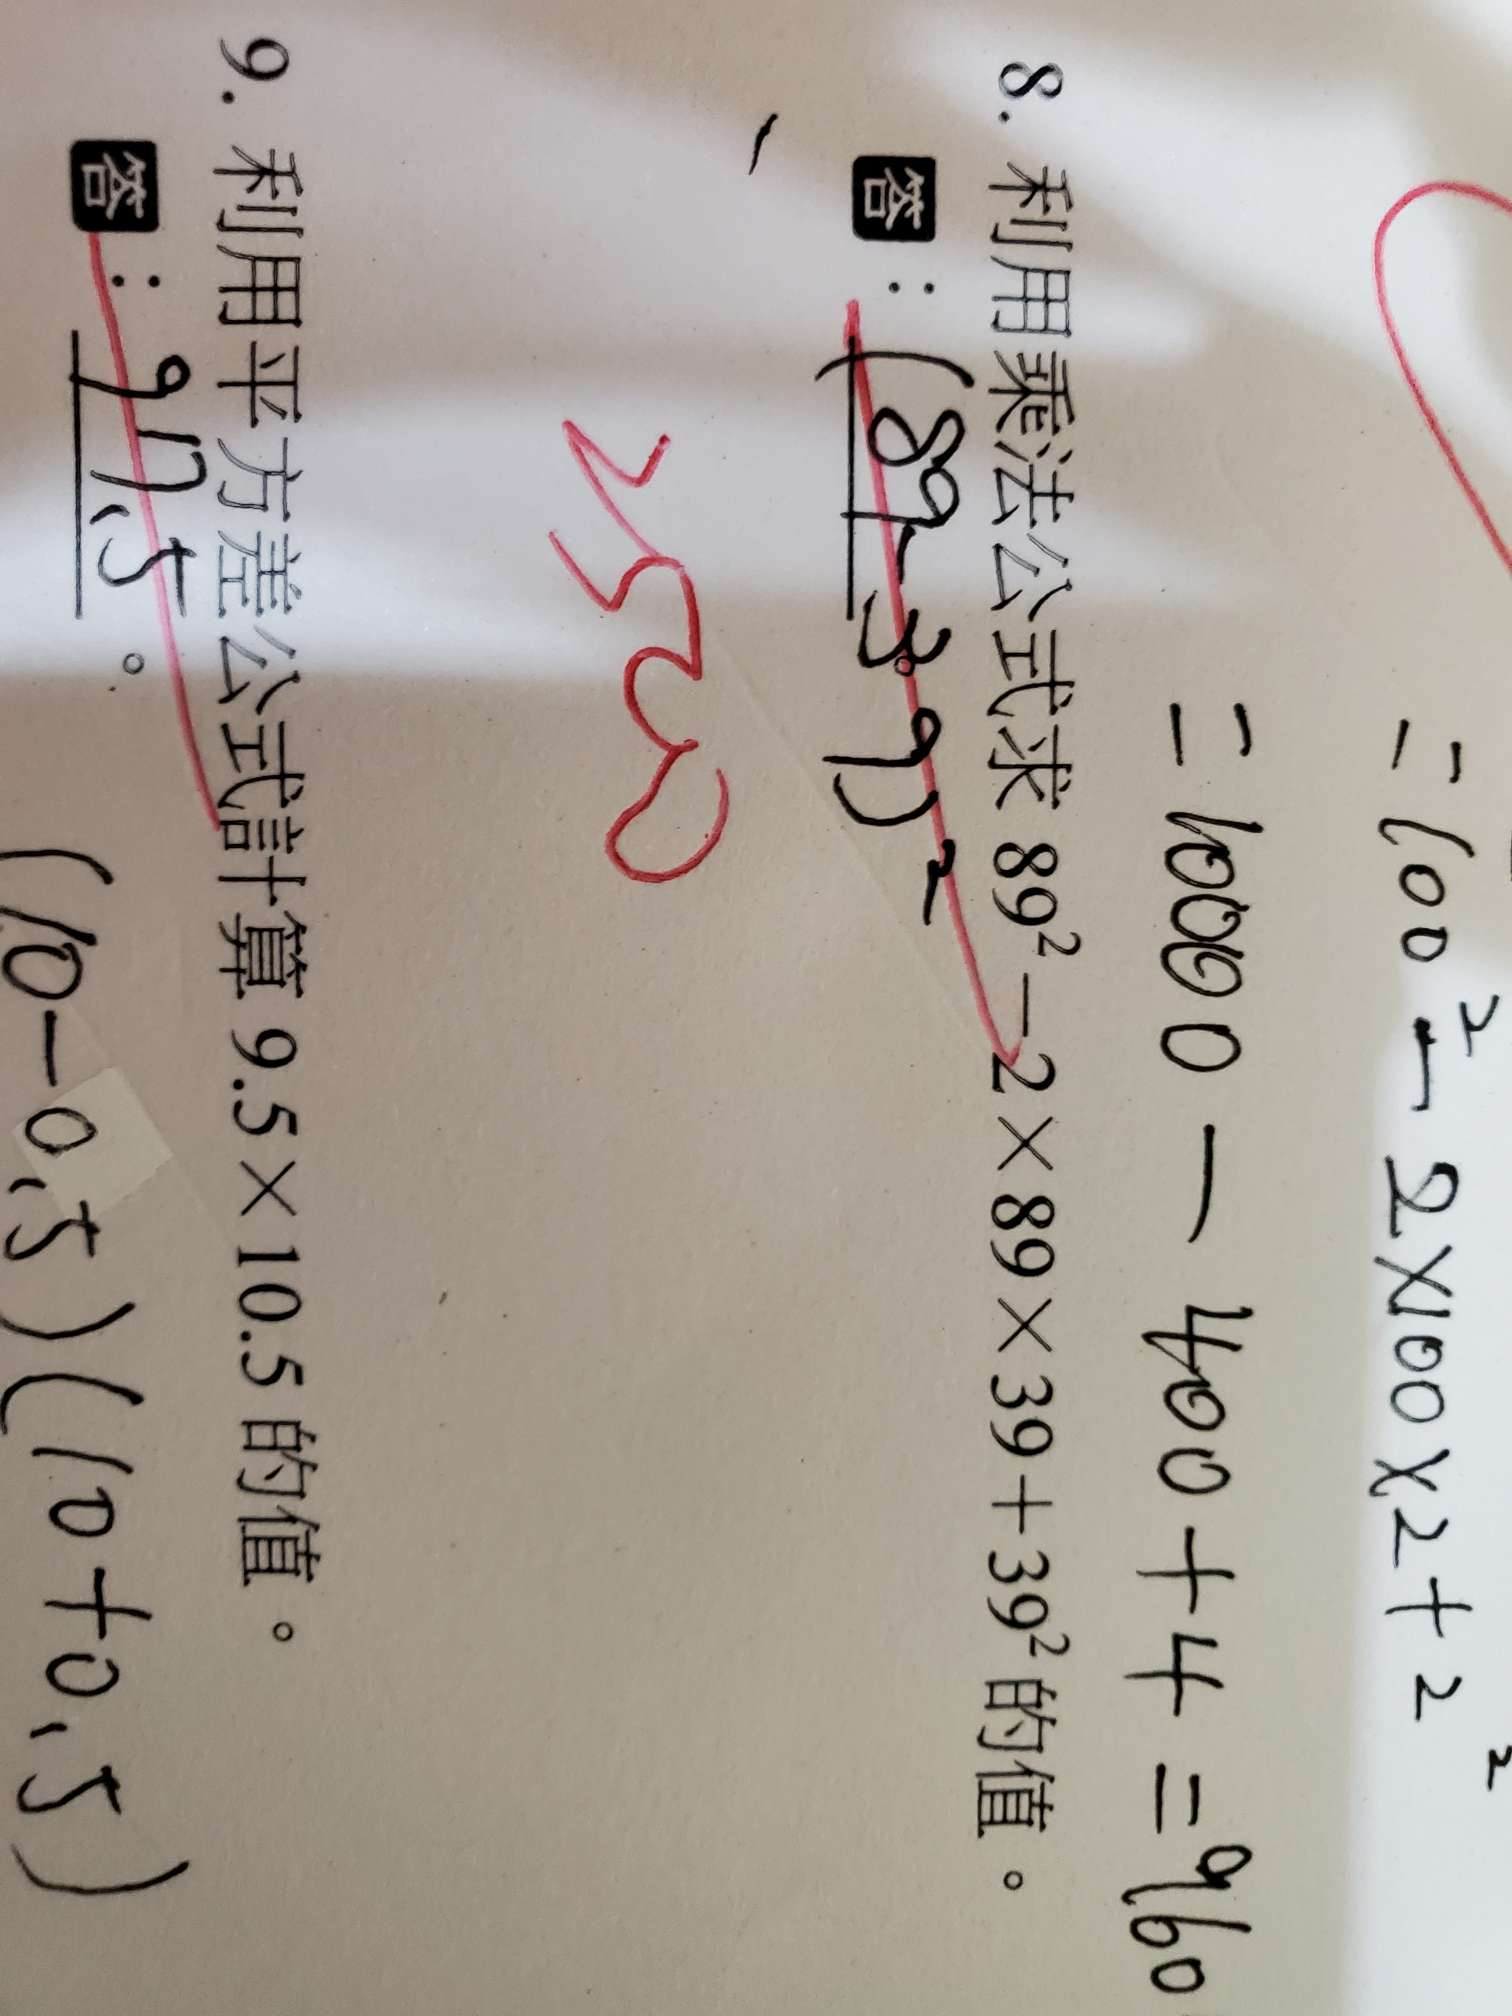 =100²-2×100×2+2²
=10000-400+4=960
8. 利用乘法公式求 89²-2×89×39+39² 的值。
答：(89-39)²。
2500
9. 利用平方差公式計算 9.5×10.5 的值。
答：。
(10-0.5)(10+0.5)